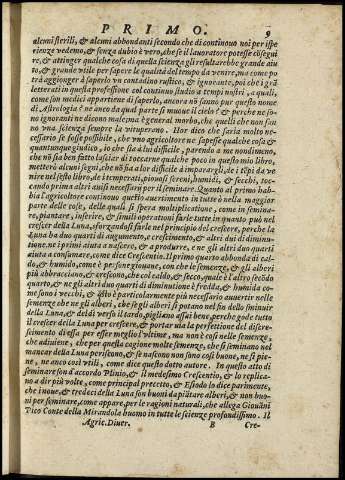 PRIMO. 9
alcuni sterili, & alcuni abbondanti secondo che di continouo noi per ispe
rienze vedemo, & senza dubio è vero, che se il lauoratore potesse cõsegui
re, & attinger qualche cosa di quella scienza gli resultarebbe grande aiu
to, & grande vtile per sapere le qualità del tempo da venire, ma come po
trà aggionger à saperlo vn contadino rustico, & ignorante, poi che i grã
letterati in questa professione col continuo studio a tempi nostri, a quali,
come son medici appartiene di saperlo, ancora nõ sanno pur questo nome
di, Astrologia è ancora da qual parte si muoue il cielo? & perche ne so-
no ignoranti ne dicono male, ma è general morbo, che quelli che non san
no vna scienza sempre la vituperano. Hor dico che saria molto ne-
cessario se fosse possibile, che vno agricoltore ne sapesse qualche cosa &
quantunque giudico, io che sia a lui difficile, parendo a me nondimeno,
che nõ sia ben fatto lasciar di toccarne qualche poco in questo mio libro,
metterò alcuni segni, che nõ sia a lor difficile d imparargli, & i tẽpi da ve
nire nel sesto libro, de i temperati, piouosi sereni, humidi, & secchi, toc-
cando prima altri auisi necessarij per il seminare. Quanto al primo hab-
bia l'agricoltore continuo questo auertimento in tutte ò nella maggior
parte delle cose, delle quali si spera moltiplicatione, come in semina-
re, piantare, inserire, & simili operationi farle tutte in quanto può nel
crescer della Luna, sforzandosi farle nel principio del crescere, perche la
Luna ha duo quarti di augumento, & crescimento, & altri dui di diminu-
tione. ne i primi aiuta a nascere, & a produrre, e ne gli altri duo quarti
aiuta a consumare, come dice Crescentio. Il primo quarto abbonda di cal-
do, & humido, come è persone giouene, con che le semenze, & gli alberi
più abbracciano, & crescono, che col caldo, & secco, quale è l'altro secõdo
quarto, & ne gli altri duo quarti di diminutione è fredda, & humida co
me sono i vecchi, & q̃sto è particolarmente più necessario auuertir nelle
semenze che ne gli alberi, che se gli alberi si potano nel fin dello sminuir
della Luna, & del di verso il tardo, pigliano assai bene, perche gode tutto
il crescer della Luna per crescere, & portar via la perfettione del discre-
scimento d'essa per esser meglio l'vltima, ma non è così nelle semenze,
che aduiene, che per questa cagione molte semenze, che si seminano nel
mancar della Luna periscono, & se nascono non sono così buone, ne si pie
ne, ne anco così vtili, come dice questo dotto autore. In questo atto di
seminare son d'accordo Plinio, & il medesimo Crescentio, & lo replica-
no a dir più volte, come principal precetto, & Esiodo lo dice parimente,
che i noue, & tredeci della Luna son buoni da piãtare alberi, & non buo-
ni per seminare, come appare, per le ragioni naturali, che allega Giouãni
Pico Conte della Mirandola huomo in tutte le scienze profondissimo. Il
Agric. Diuer. B Cre-